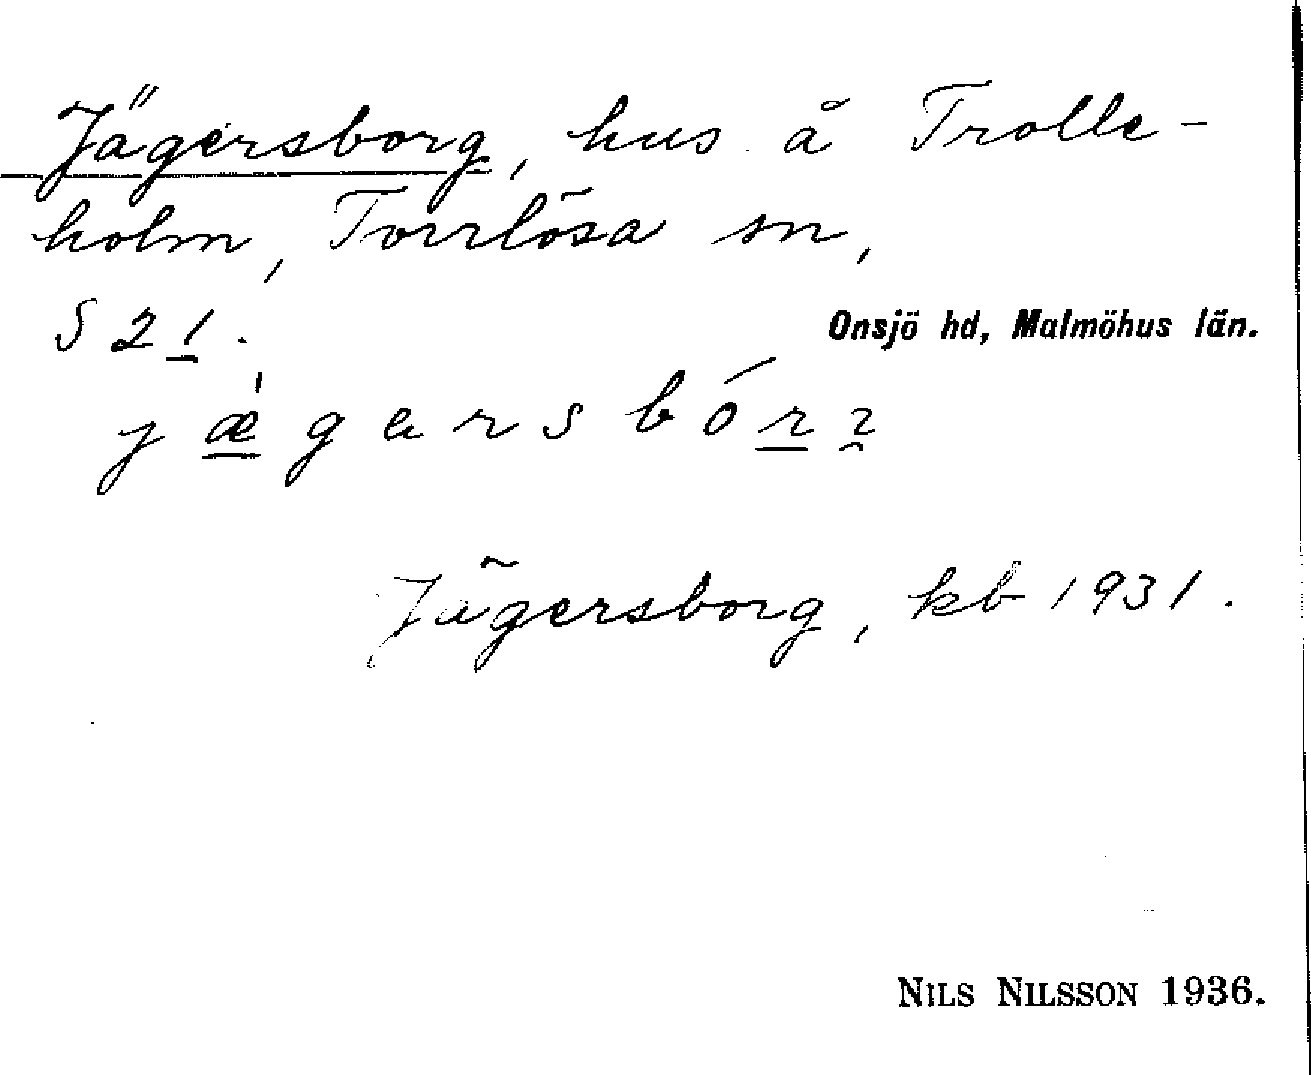 Jägersborg, hus å Trolle-
holm, Torrlösa sn,
S 21.
Onsjö hd, Malmöhus län.
j æ̍ g a r s b ó r ɂ
Jägersborg, kb 1931.
NILS NILSSON 1936.